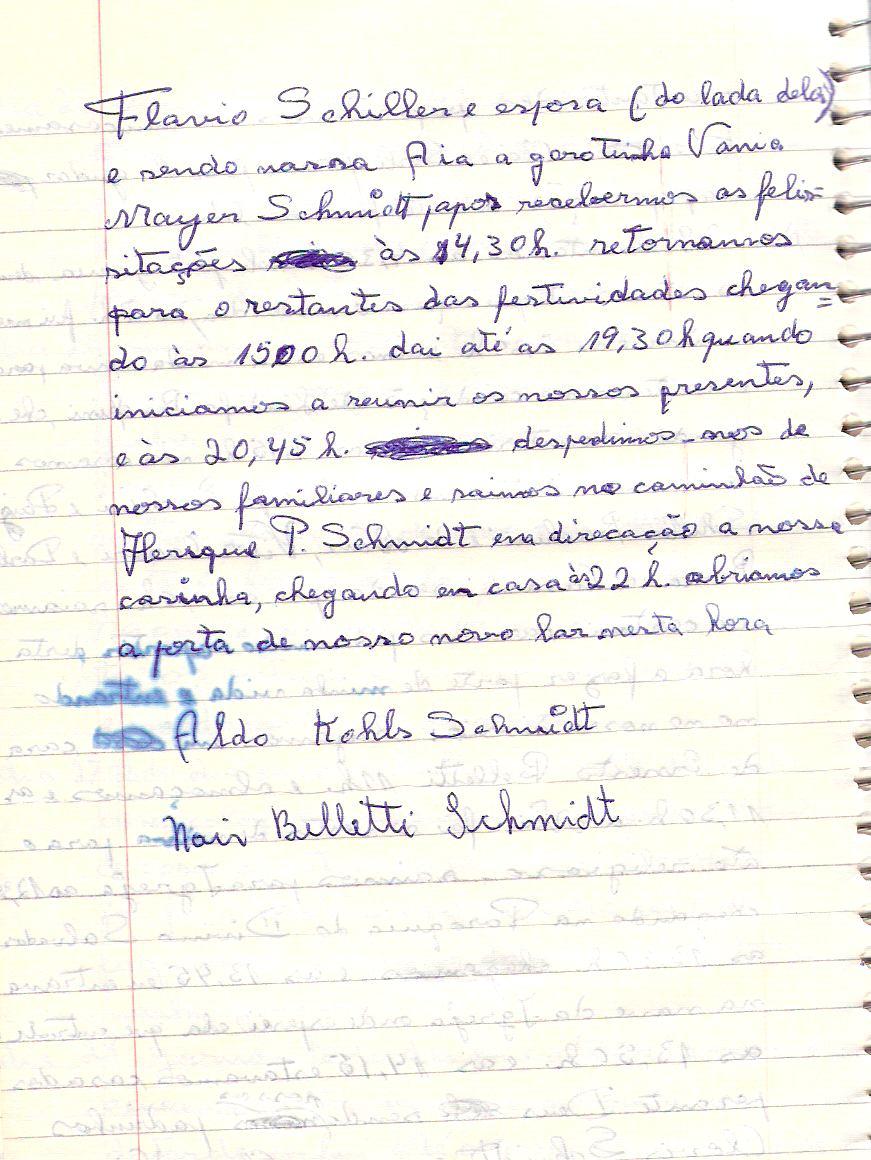 Flavio Schiller e esposa (do lada dela)
e sendo nassa Aia a garotinha Vania
Mayer Schmidt, após recebermos as feliz=
sitações às 14,30h. retornamos
para o restantes das festividades chegan=
do às 1500h. dai até as 19,30h quando
iniciamos a reunir os nossos presentes,
e às 20,45h. despedimos-nos de
nossos familiares e saimos no caminhão de
Henrique P. Schmidt em direcação a nossa
casinha, chegando em casa às 22h. abriamos
a porta de nosso novo lar nesta hora
Aldo Kohls Schmidt
Nair Belletti Schmidt